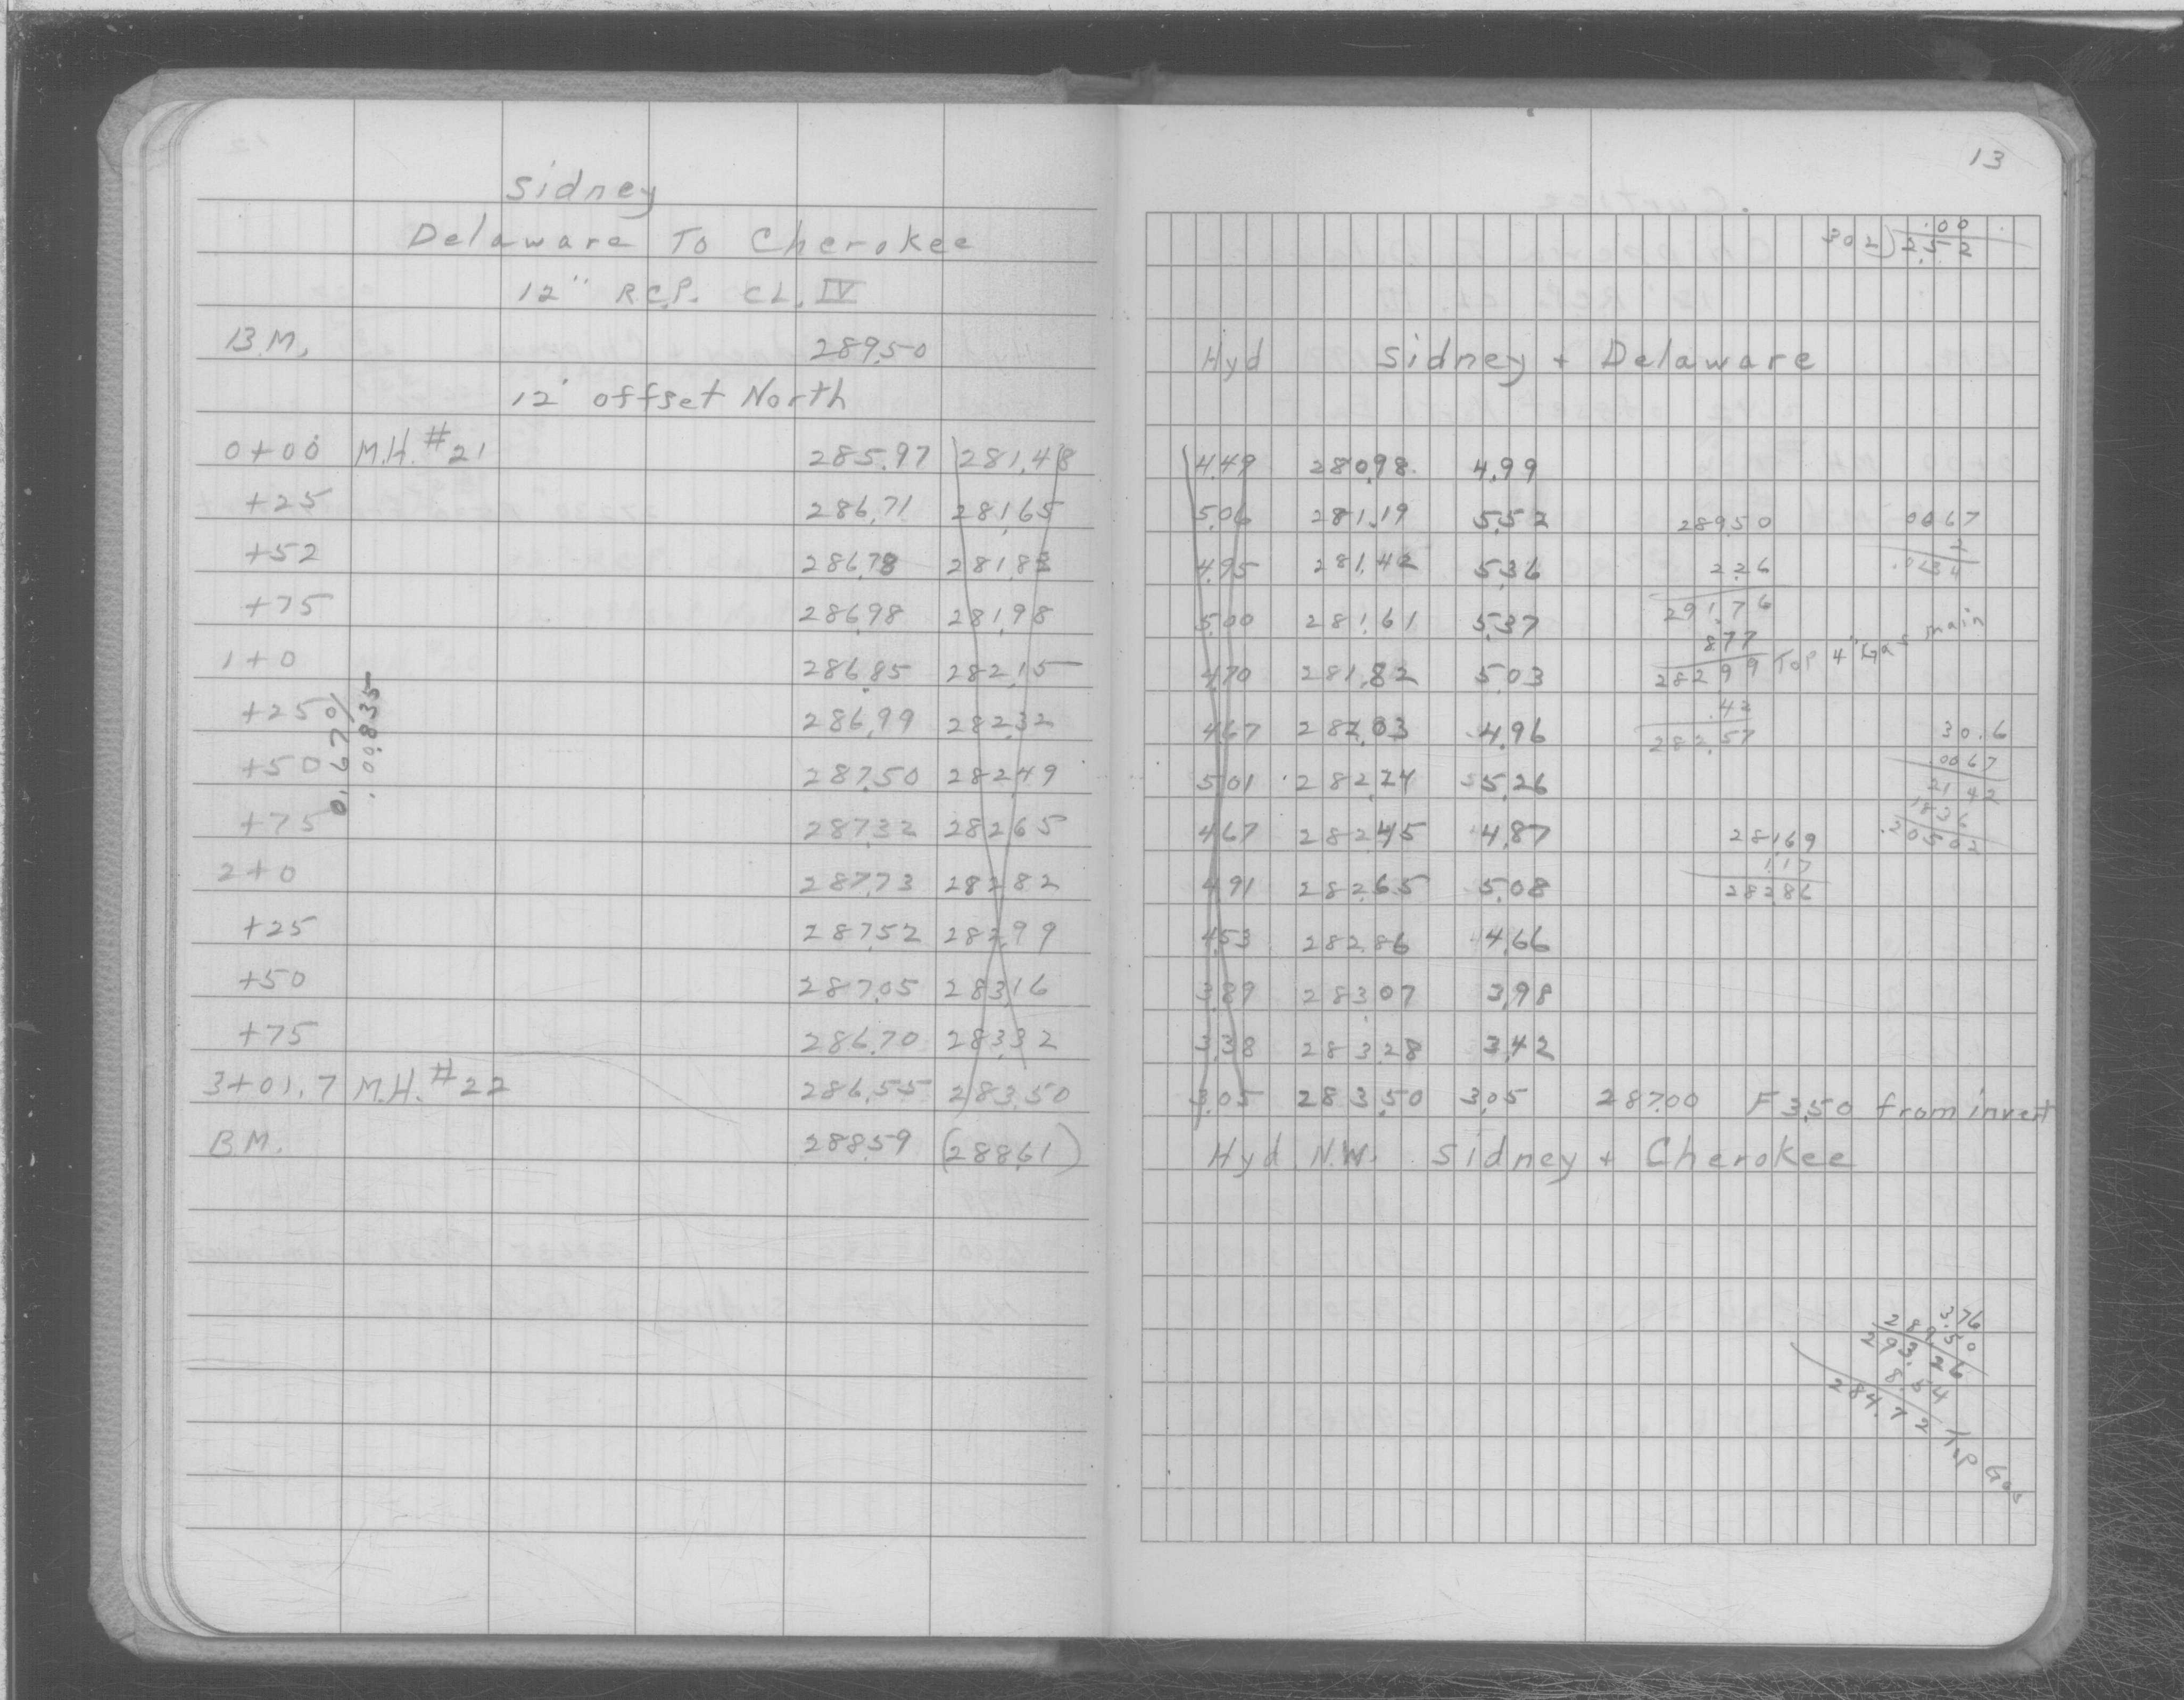 Sidney
Delaware To Cherokee
12" R.C.P. CL. IV
B.M. 289.50
12' offset North
0+00 M.H. #21 285.97 281.48
+25 286.71 281.65
+52 286.78 281.83
+75 286.98 281.98
1+0 286.85 282.15
+25 286.99 282.32
+50 287.50 282.49
+75 287.32 282.65
2+0 287.73 282.82
+25 287.52 282.99
+50 287.05 283.16
+75 286.70 283.32
3+01.7 M.H. #22 286.55 283.50
B.M. 288.59 (288.61)
0.67%
.00835
13
.00
302)2.52
Hyd Sidney + Delaware
4.49 280.98 4.99
5.06 281.19 5.52
4.95 281.42 5.36
5.00 281.61 5.37
4.70 281.82 5.03
4.67 282.03 4.96
5.01 282.24 5.26
4.67 282.45 4.87
4.91 282.65 5.08
4.53 282.86 4.66
3.89 283.07 3.98
3.38 283.28 3.42
3.05 283.50 3.05 287.00 F 3.50 from invert
Hyd N.W. Sidney + Cherokee
289.50
2.26
291.76
8.77
282.99 Top 4" Gas main
.42
282.57
0067
2
.0134
30.6
.0067
2142
1836
.20502
281.69
1.17
282.86
3.76
289.50
293.26
8.54
284.72 Top Gas